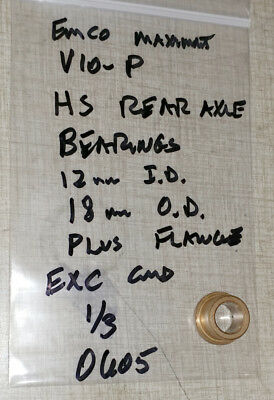 EMCO MAXIMAT
V10-P
HS REAR AXLE
BEARINGS
12mm I.D.
18mm O.D.
PLUS FLANGE
EXC CND
1/3
0605